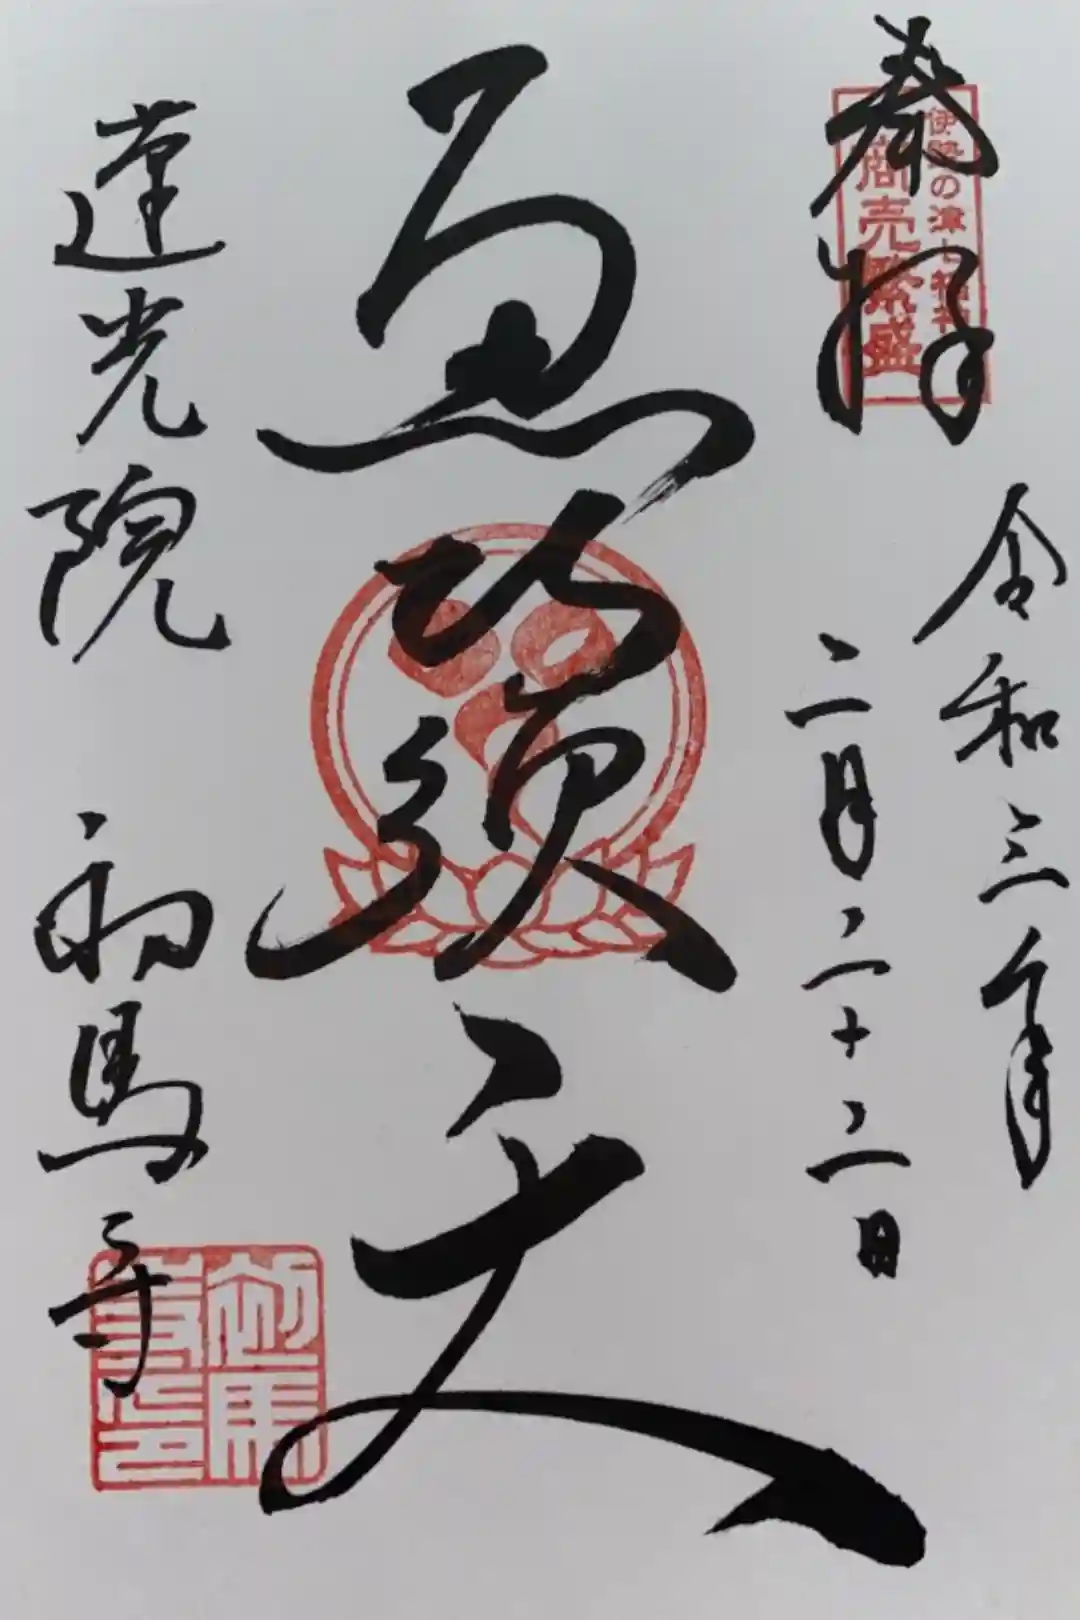 奉拝
伊勢の津七福神
商売繁盛
令和三年
二月二十二日
恵比須天
蓮光院 初馬寺
初馬
寺印